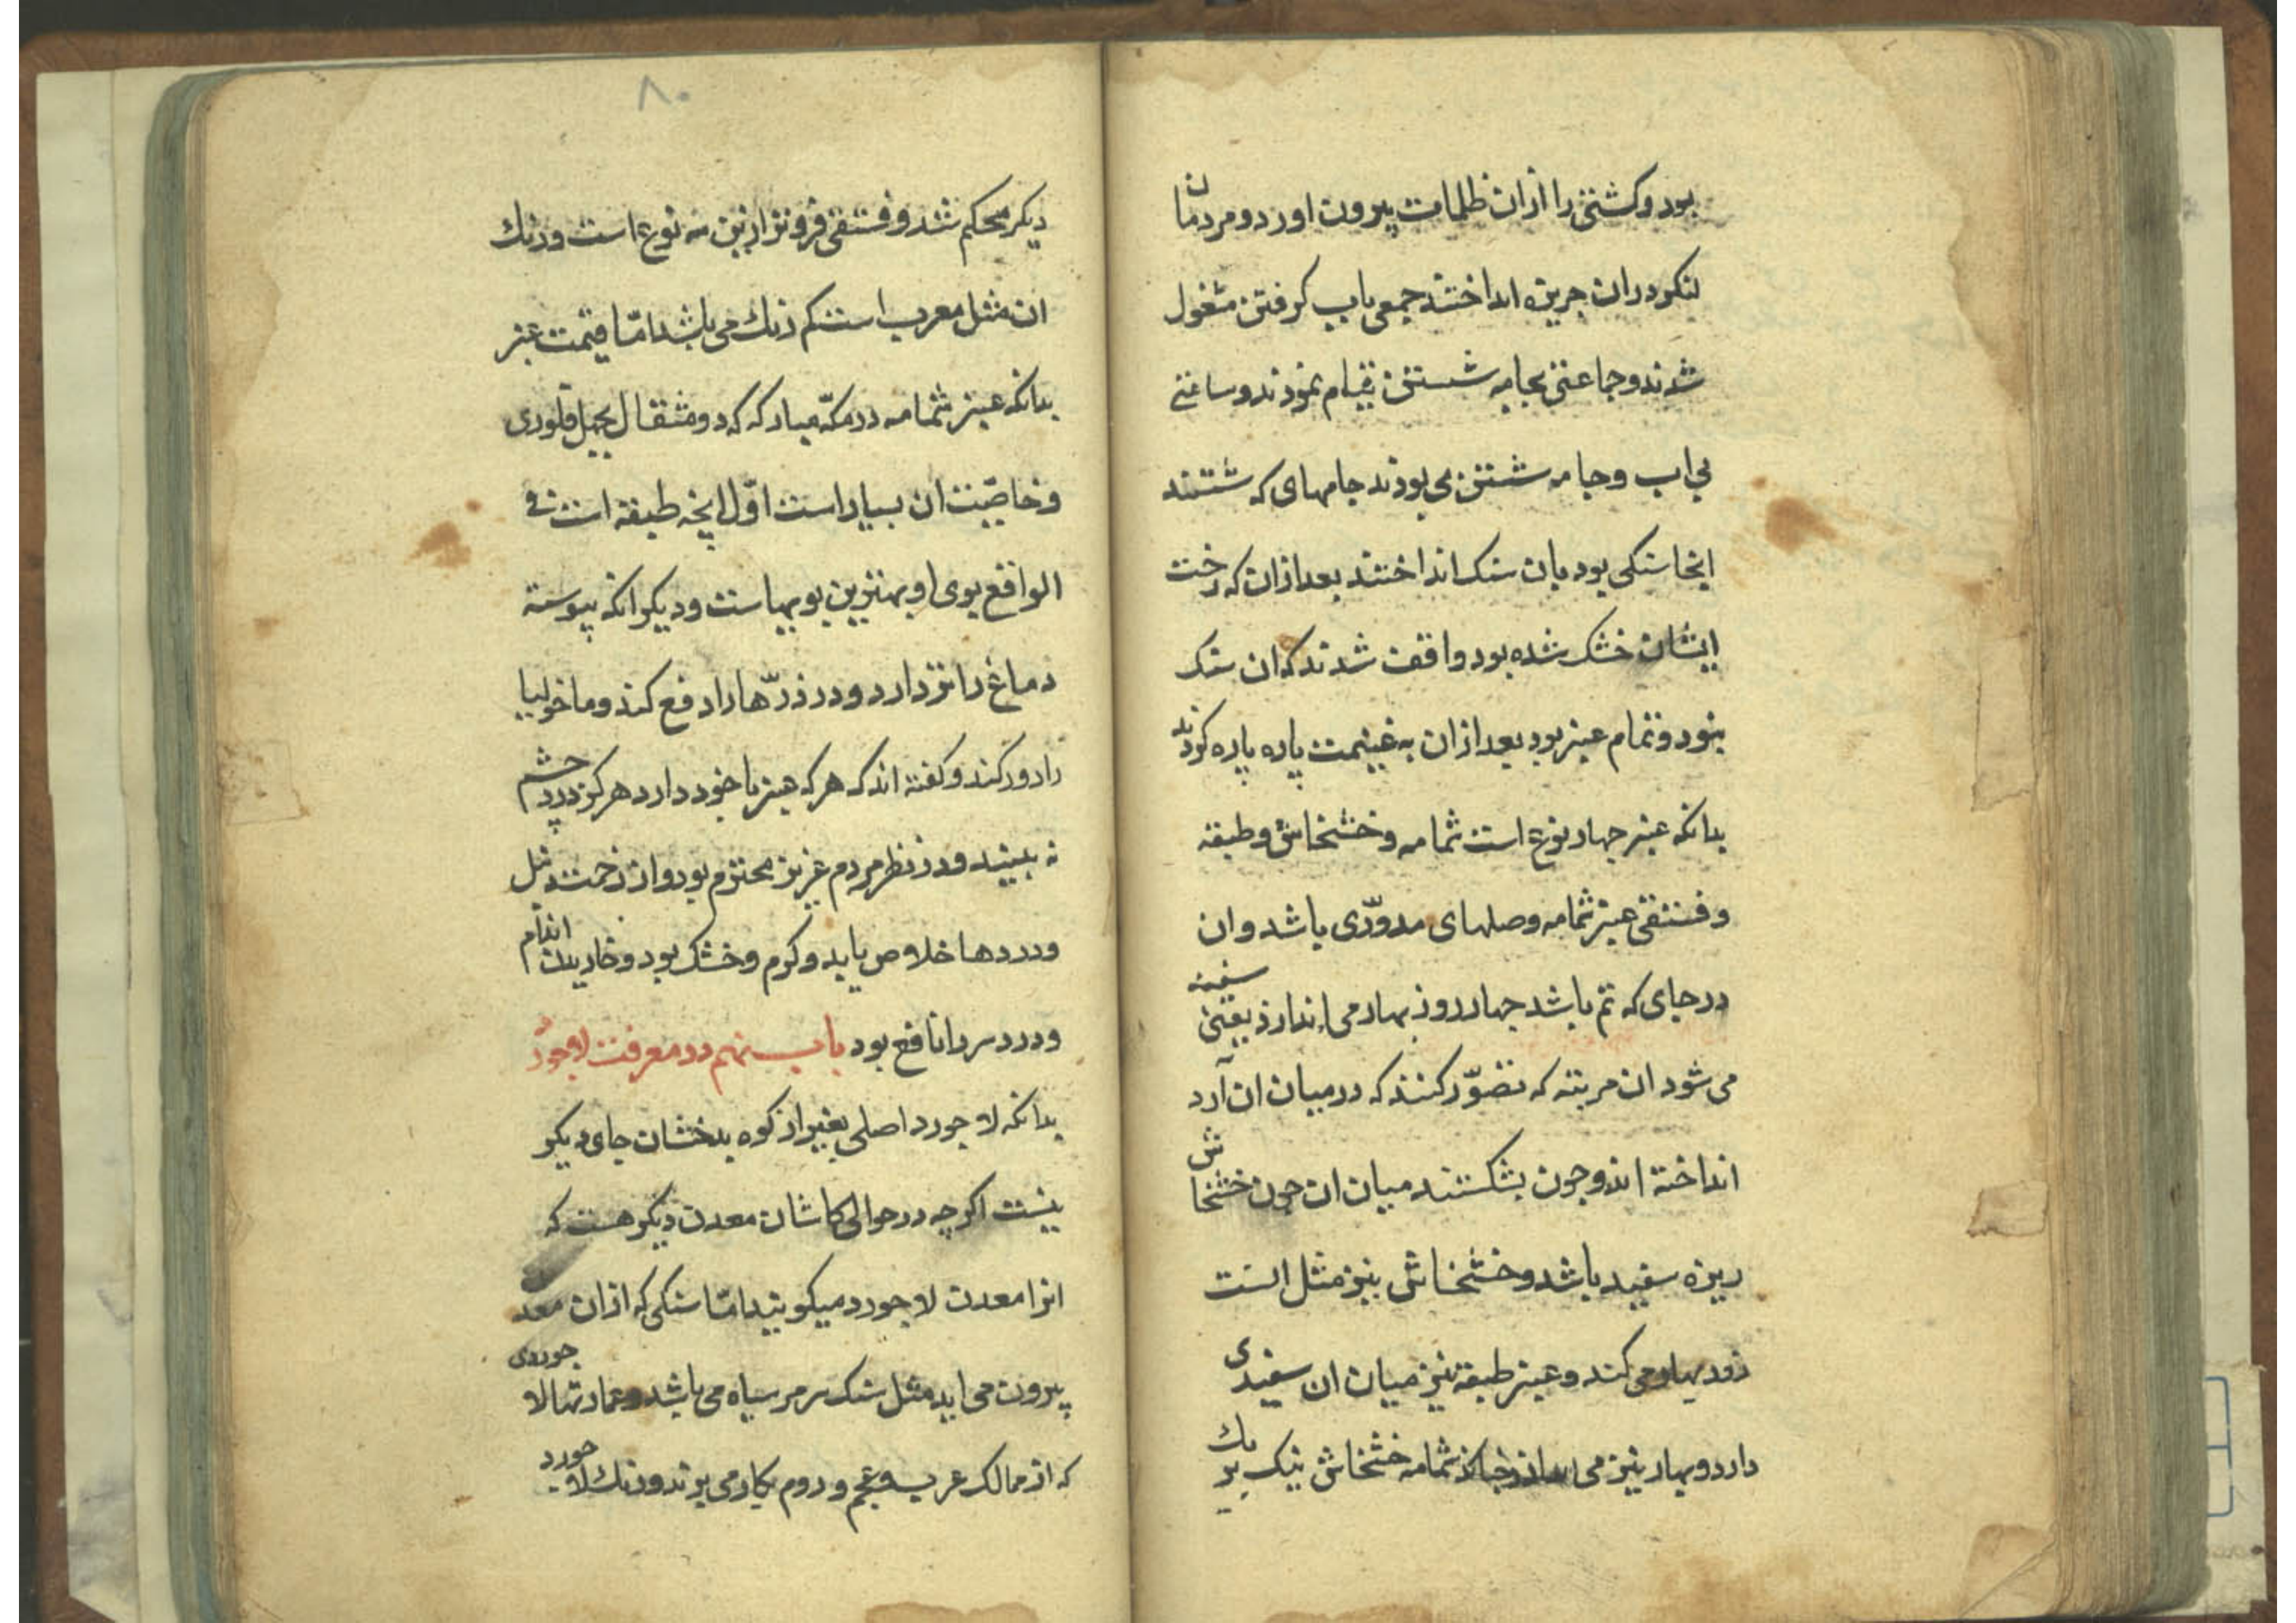 بود و کشتی را ازان ظلمات بیرون اورد و مردمان
لنکر دران جزیره انداختند جمعی باب کرفتن مشغول
شدند و جماعتی بجامه شستن قیام نمودند و ساعتی
بی اب و جامه شستن می بودند جامهای که شستند
انجا سنکی بود بان سنک انداختند بعد ازان که رخت
ایشان خشک شده بود واقف شدند که ان سنک
نبود و تمام عنبر بود بعد ازان به غنیمت پاره پاره کردند
بدانکه عنبر چهار نوع است شمامه و خشخاش و طبقه
و فستقی عنبر شمامه وصلهای مدوّری باشد و ان
در جای که نم باشد چهار روز بهار می اندازد یعنی سفید
می شود ان مرتبه که تصوّر کنند که در میان ان آرد
انداخته اند و چون بشکستند میان ان چون خشخاش
ریزه سفید باشد و خشخاش نیز مثل انست
زود بهار می کند و عنبر طبقه نیز میان ان سفیدی
دارد و بهار نیز می شمامه خشخاش نیک یک بر
۸۰
دیکر محکم شد و فستقی فروتر ازین سه نوع است و رنک
ان مثل معرب است کم رنک می باشد امّا قیمت عنبر
بدانکه عنبر شمامه در مکّه مبارکه که دو مثقال فلوری
و خاصّیت ان بسیار است اوّل انچه طبقه است فی
الواقع بوی او بهترین بویهاست و دیکر انکه پیوسته
دماغ را تر دارد و درد زرّها را دفع کند و ماخولیا
را دور کند و کفته اند که هر که عنبر با خود دارد هرکز درد چشم
نه بیند و در نظر مردم عزیز محترم بود و از زحمت دنبل
و دردها خلاص یابد و کرم و خشک بود و خاریدن اندام
و درد سر را نافع بود باب نهم در معرفت لاجورد
بدانکه لاجورد اصلی بغیر از کوه بدخشان جای دیکر
نیست اکرچه در حوالی کاشان معدن دیکر هست که
انرا معدن لاجورد میکویند امّا سنکی که ازان معدن
بیرون می اید مثل سنک مرمر سیاه می باشد و عمارتها لاجوردی
که از ممالک عرب و عجم و روم بکار می برند و رنک لاجورد